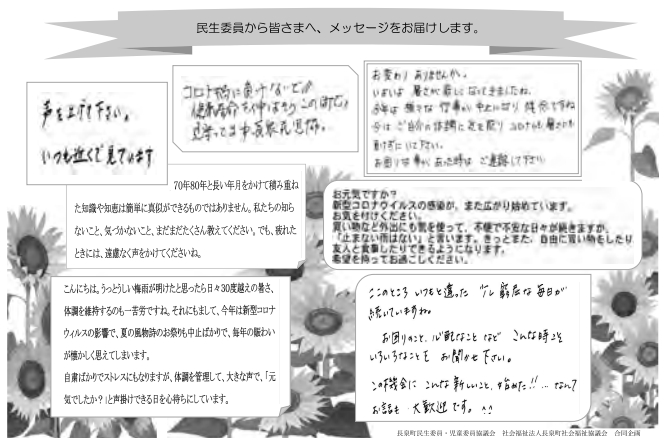 民生委員から皆さまへ、メッセージをお届けします。
声を上げて下さい。
いつも近くで見ています
コロナ禍に負けないで!!
健康寿命を伸ばそうこの町で
お変わりありませんか。
いよいよ暑さが厳しくなってきましたね。
今年は様々な行事が中止になり残念ですね
今はご自分の体調に気を配りコロナにも暑さにも
負けずにいて下さい。
お困り事があった時はご連絡して下さい
70年80年と長い年月をかけて積み重ね
た知識や知恵は簡単に真似ができるものではありません。私たちの知ら
ないこと、気づかないこと、まだまだたくさん教えてください。でも、疲れた
ときには、遠慮なく声をかけてくださいね。
お元気ですか?
新型コロナウイルスの感染が、また広がり始めています。
お気を付けください。
買い物など外出にも気を使って、不便で不安な日々が続きますが、
「止まない雨はない」と言います。きっとまた、自由に買い物をしたり
友人と食事したりできるようになります。
希望を持ってお過ごしください。
こんにちは。うっとうしい梅雨が明けたと思ったら日々30度越えの暑さ、
体調を維持するのも一苦労ですね。それにもまして、今年は新型コロナ
ウィルスの影響で、夏の風物詩のお祭りも中止ばかりで、毎年の賑わい
が懐かしく思えてしまいます。
自粛ばかりでストレスにもなりますが、体調を管理して、大きな声で、「元
気でしたか?」と声掛けできる日を心待ちにしています。
ここのところ いつもと違った 少し窮屈な毎日が
続いていますね。
お困りのこと、心配なこと など こんな時こそ
いろいろなことを お聞かせ下さい。
この機会に こんな新しいこと、始めた!!…なんて
お話も 大歓迎です。^^
長泉町民生委員・児童委員協議会 社会福祉法人長泉町社会福祉協議会 合同企画